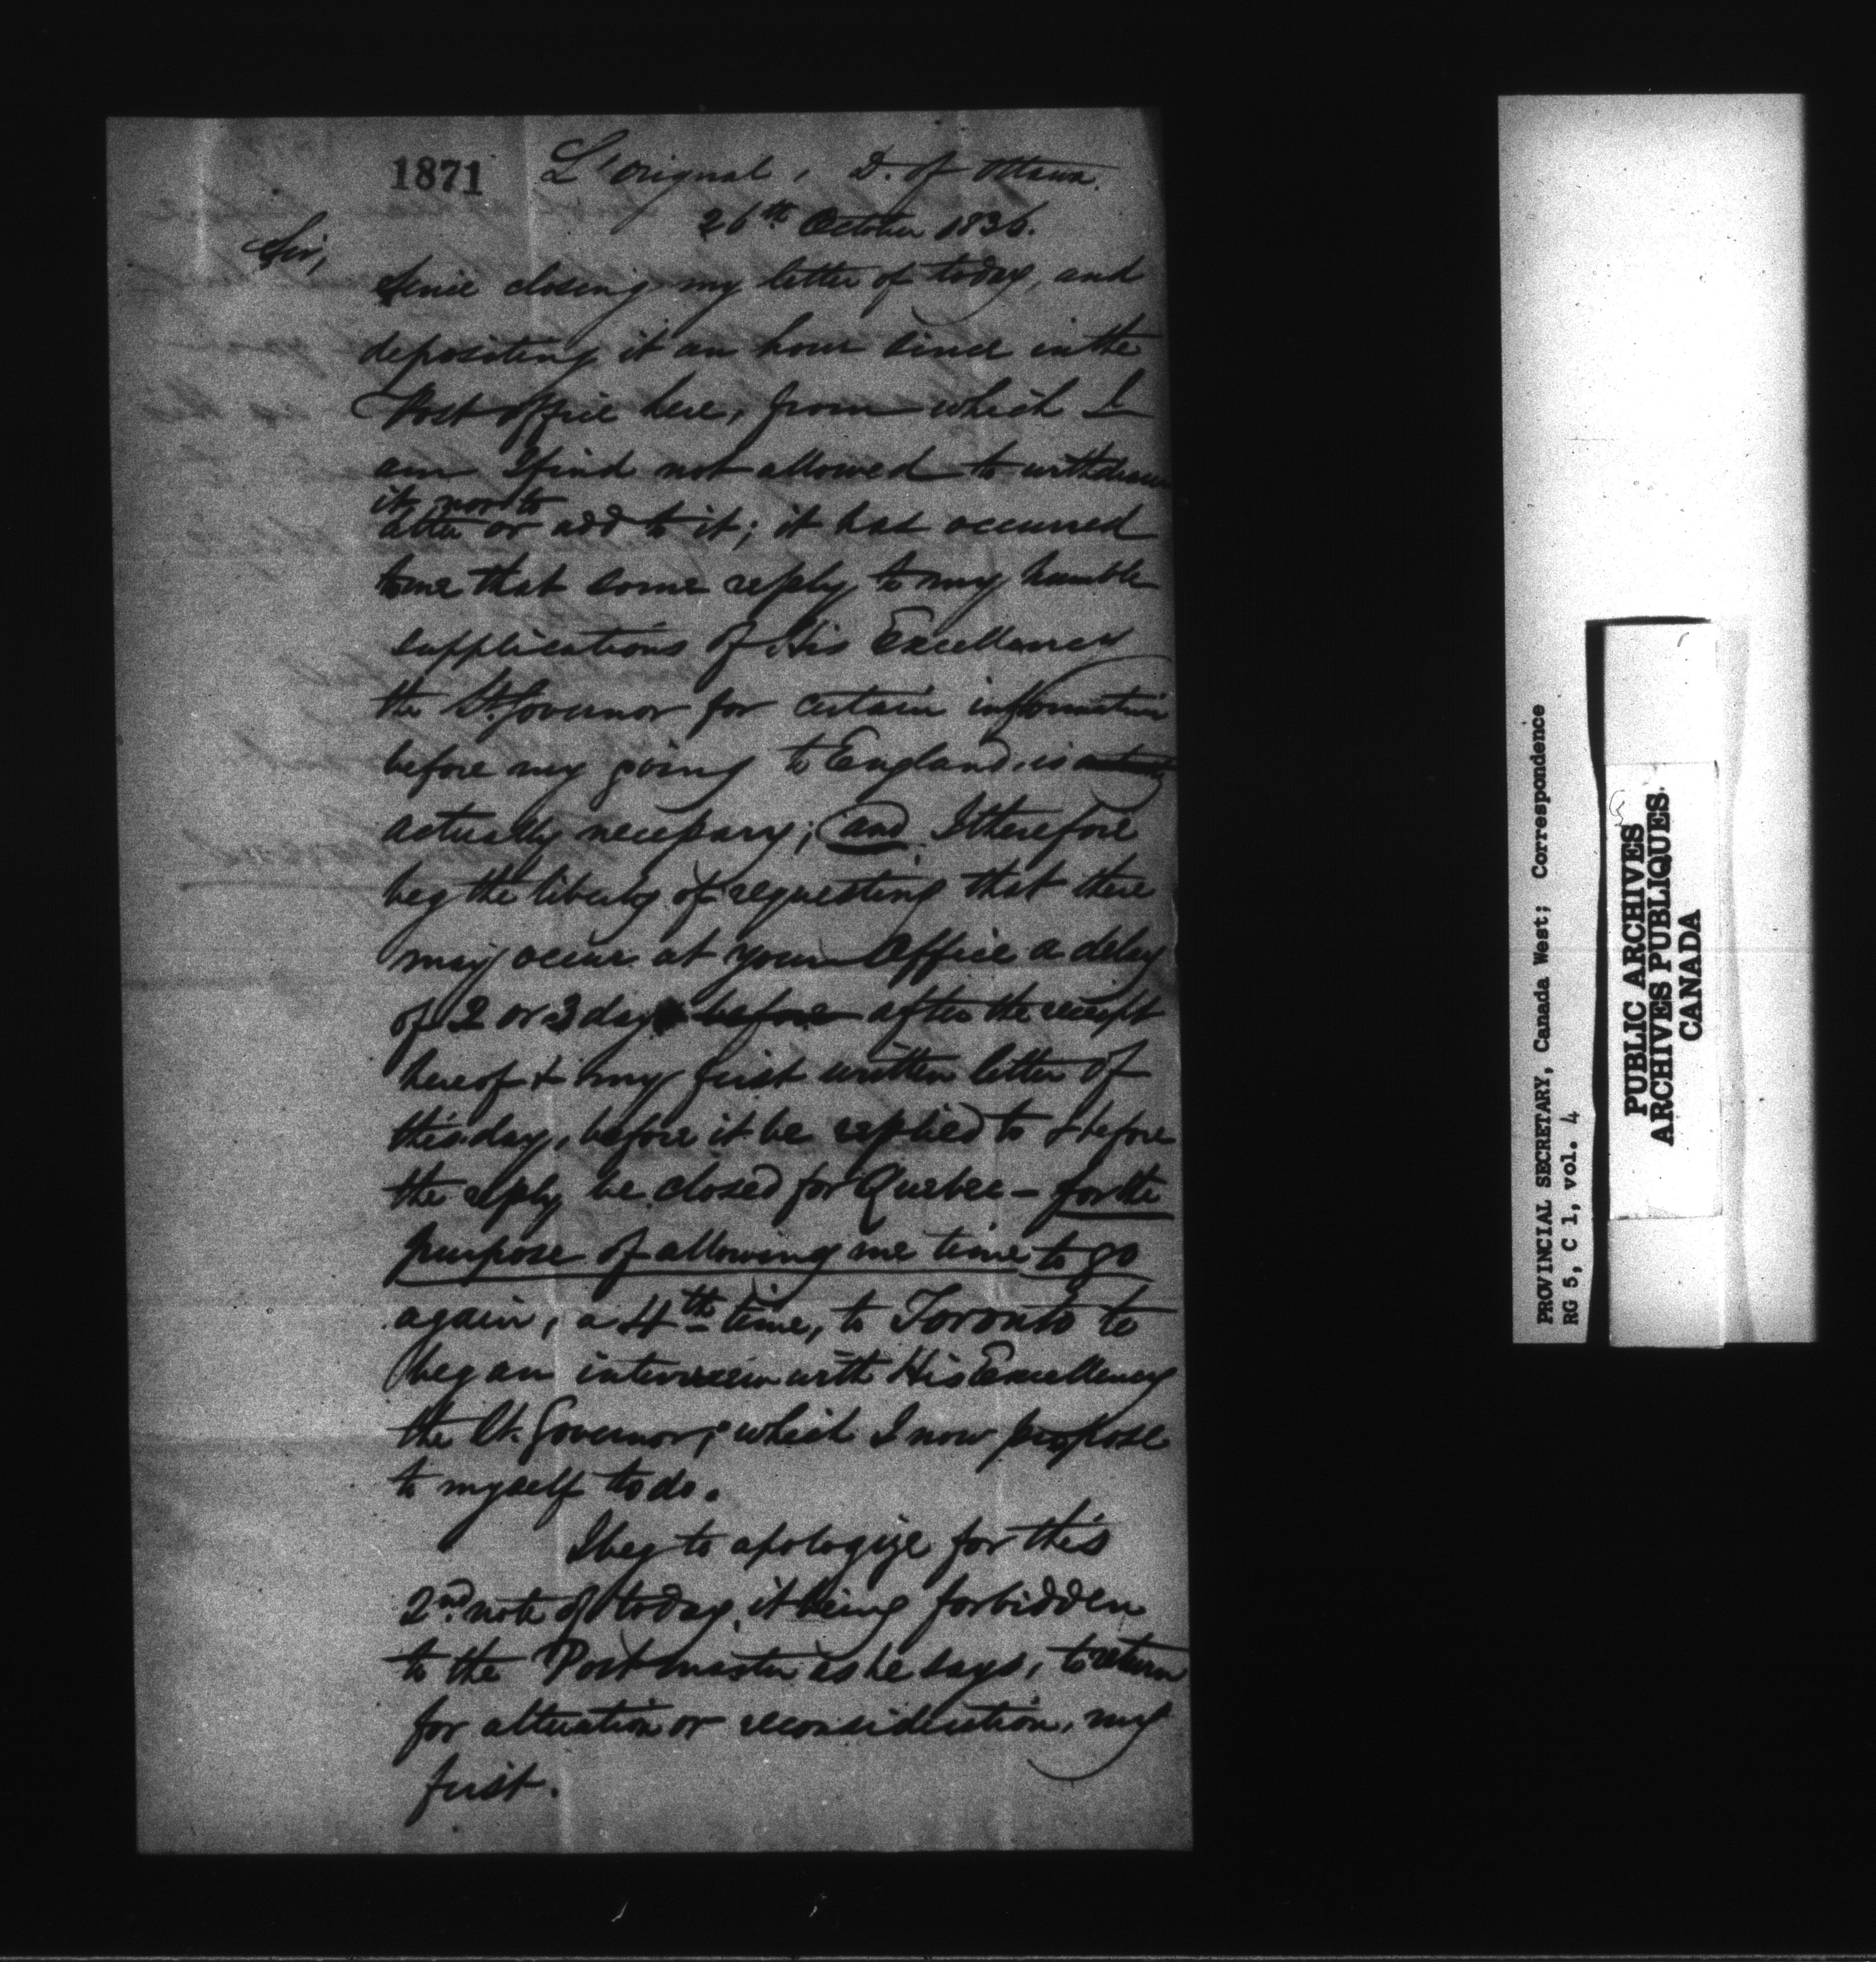 1871
L'orignal, D. of Ottawa.
26th October 1836.
Sir,
Since closing my letter of today, and
depositing it an hour since in the
Post office here, from which I
am I find not allowed to withdraw
it, nor to
alter or add to it; it has occurred
to me that some reply to my humble
supplications of His Excellency
the Lt. Governor for certain information
before my going to England, is
actually necessary; and I therefore
beg the liberty of requesting that there
may occur at your Office a delay
of 2 or 3 days before after the receipt
hereof & my first written letter of
this day, before it be replied to & before
the reply be closed for Quebec - for the
purpose of allowing me time to go
again, a 4th time, to Toronto to
beg an interview with His Excellency
the Lt. Governor; which I now propose
to myself to do.
I beg to apologize for this
2nd note of today, it being forbidden
to the Postmaster as he says, to return
for alteration or reconsideration, my
first.
PROVINCIAL SECRETARY, Canada West; Correspondence
RG 5, C 1, vol. 4
PUBLIC ARCHIVES
ARCHIVES PUBLIQUES
CANADA